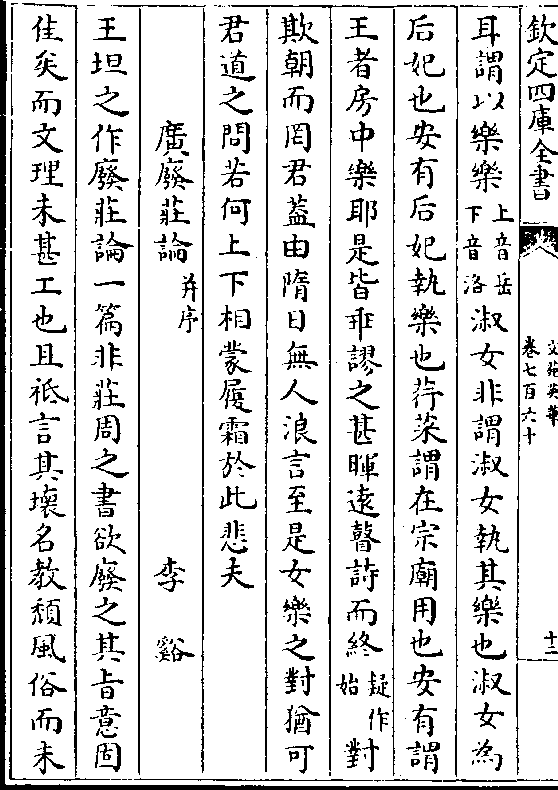 欽定四庫全書
文苑英華
卷七百六十
十二
耳謂以樂樂上音岳下音洛淑女非謂淑女執其樂也淑女為
后妃也安有后妃執樂也荇菜謂在宗廟用也安有謂
王者房中樂耶是皆乖謬之甚暉遠瞽詩而終疑作始對
欺朝而罔君葢由隋日無人浪言至是女樂之對猶可
君道之問若何上下相蒙履霜於此悲夫
廣廢莊論并序 李谿
王坦之作廢莊論一篇非莊周之書欲廢之其旨意固
佳矣而文理未甚工也且祗言其壞名教頹風俗而未